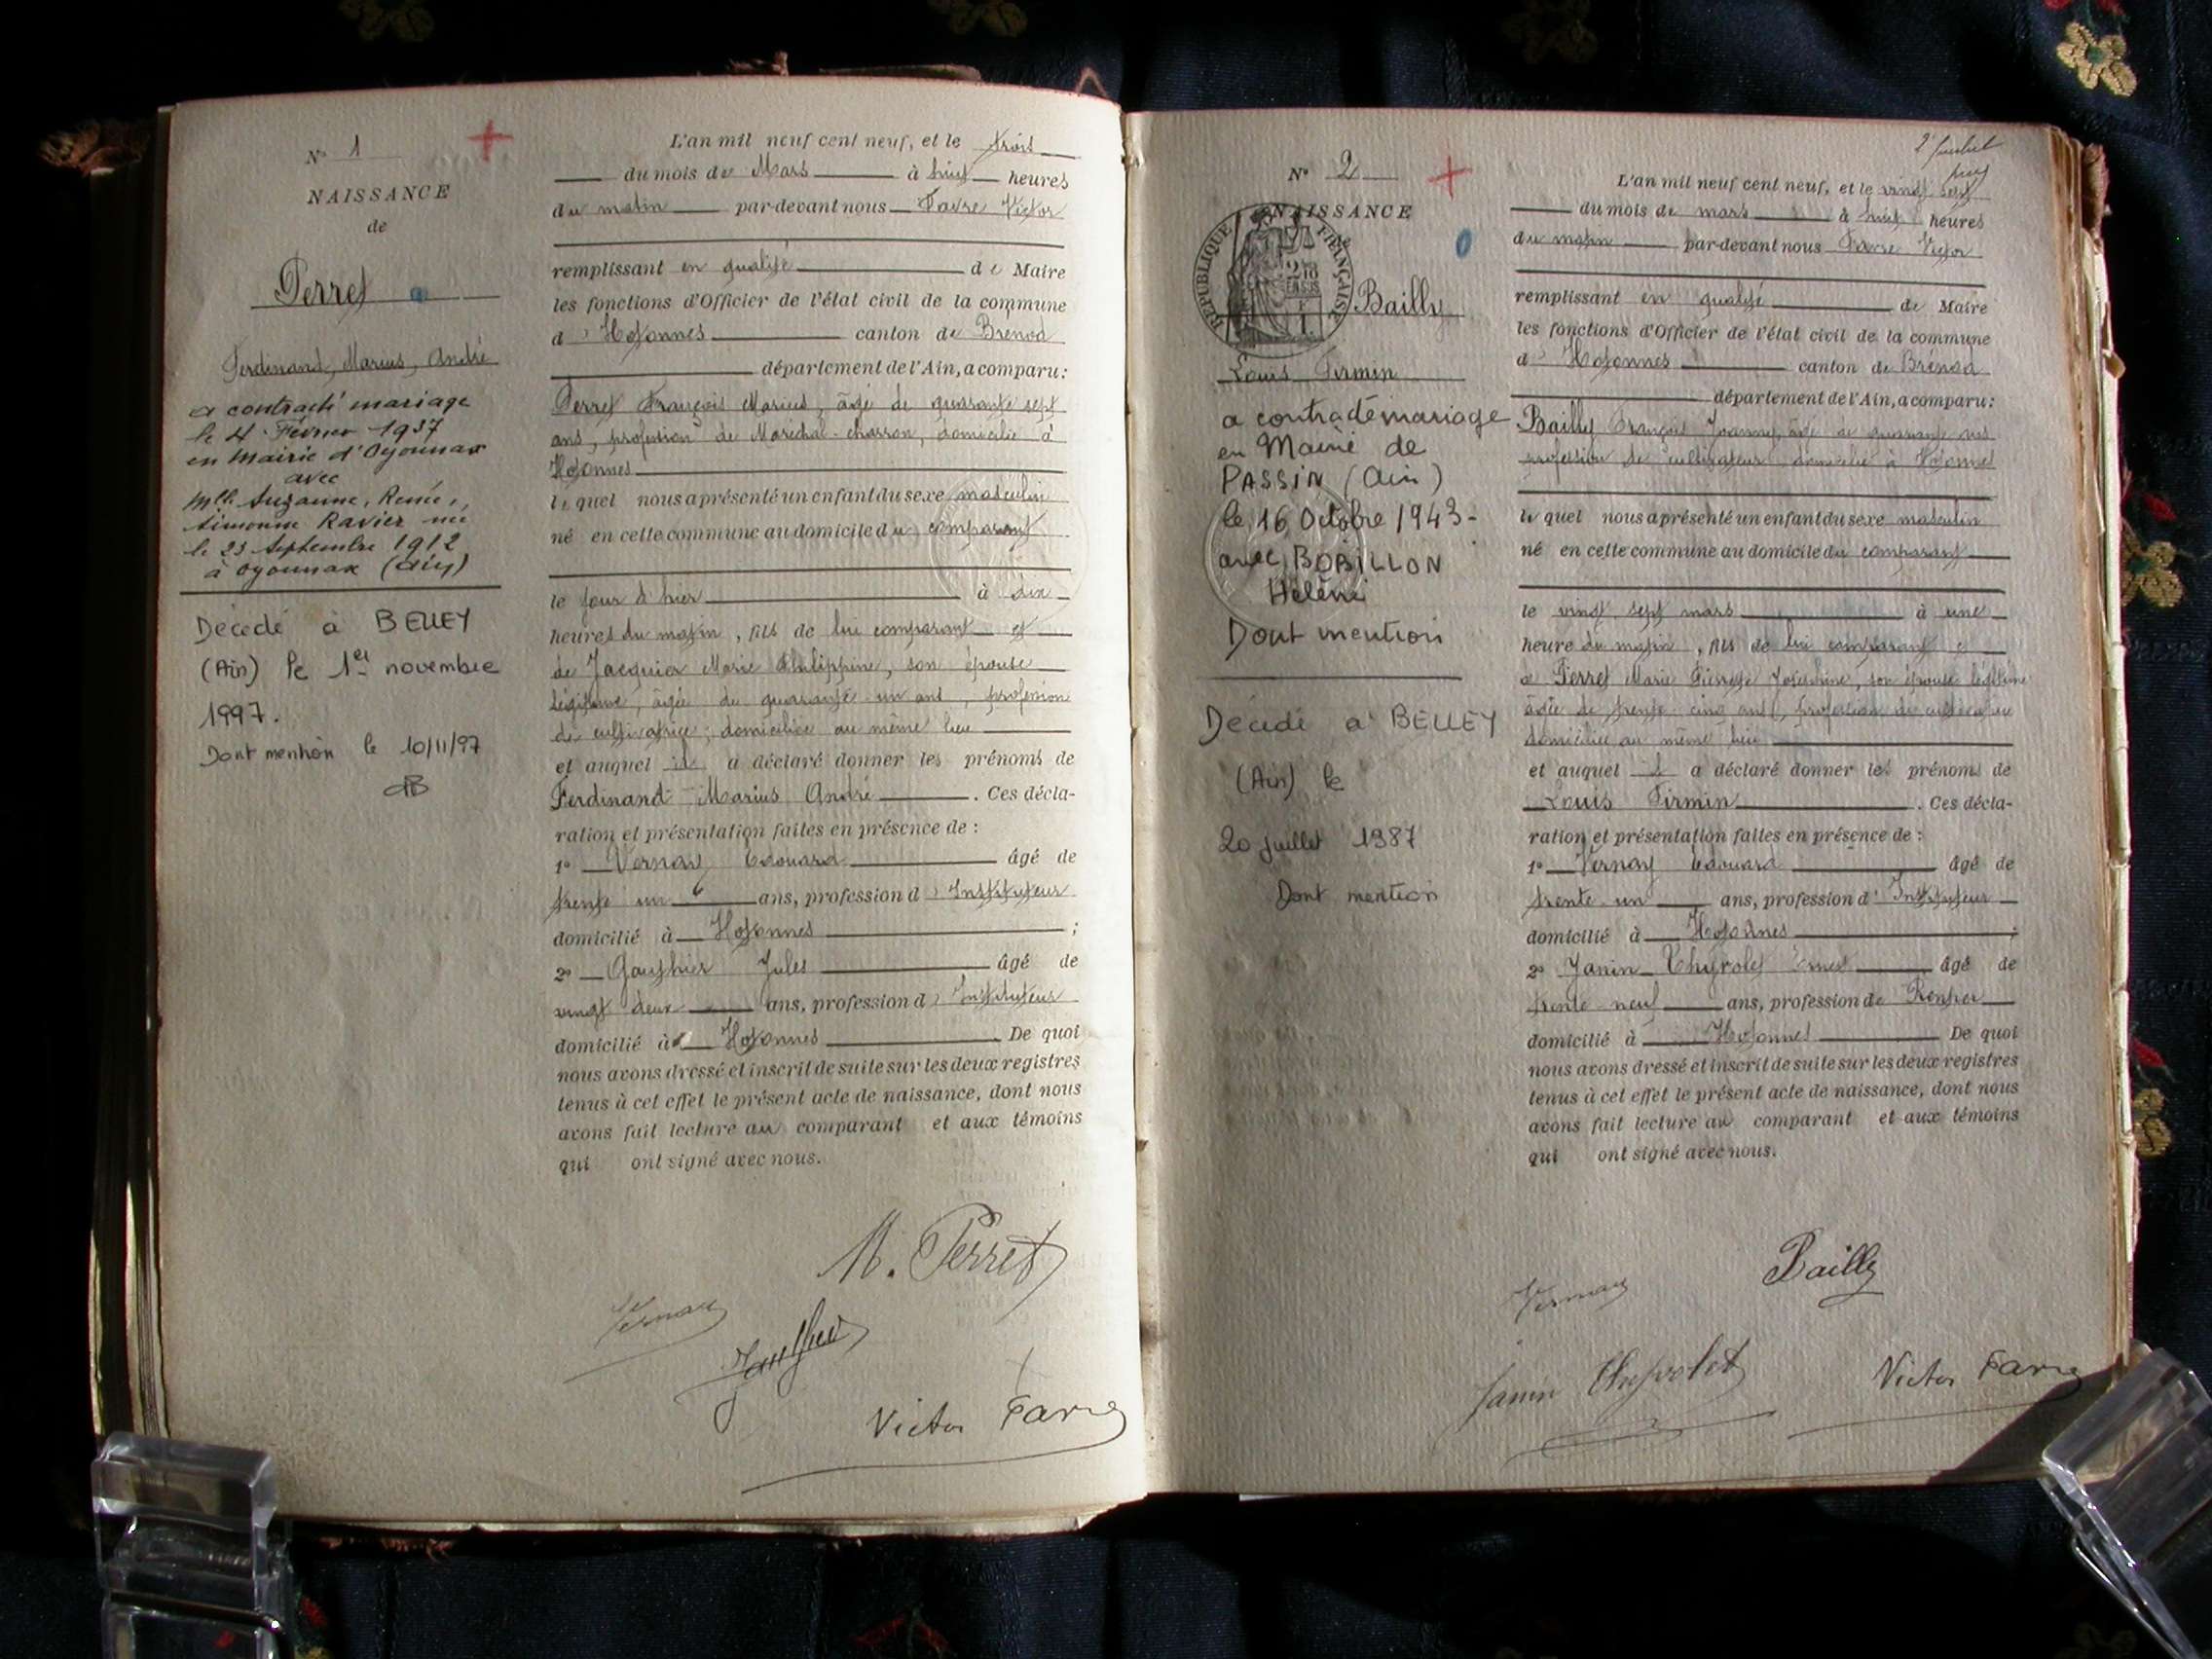 N° 1
NAISSANCE
de
Perret
Ferdinand, Marius, André
a contracté mariage
le 4 Février 1937
en Mairie d'Oyonnax
avec
Mlle Suzanne, Renée,
Simonne Ravier née
le 23 Septembre 1912
à Oyonnax (Ain)
Décédé à BELLEY
(Ain) le 1er novembre
1997.
Dont mention le 10/11/97
L'an mil neuf cent neuf, et le trois
du mois de Mars à huit heures
du matin par-devant nous Favre Victor
remplissant en qualité de Maire
les fonctions d'Officier de l'état civil de la commune
d'Hotonnes canton de Brénod
département de l'Ain, a comparu:
Perret François Marius, âgé de quarante sept
ans, profession de Maréchal-charron, domicilié à
Hotonnes
lequel nous a présenté un enfant du sexe masculin
né en cette commune au domicile du comparant
le jour d'hier à dix
heures du matin, fils de lui comparant et
de Jacquier Marie Philippine, son épouse
légitime, âgée de quarante un ans, profession
de cultivatrice; domiciliée au même lieu
et auquel il a déclaré donner les prénoms de
Ferdinand Marius André. Ces décla-
ration et présentation faites en présence de :
1° Vernay Edouard âgé de
trente un ans, profession d'Instituteur
domicilié à Hotonnes ;
2° Gauthier Jules âgé de
vingt deux ans, profession d'Instituteur
domicilié à Hotonnes De quoi
nous avons dressé et inscrit de suite sur les deux registres
tenus à cet effet le présent acte de naissance, dont nous
avons fait lecture au comparant et aux témoins
qui ont signé avec nous.
M. Perret
Vernay
Gauthier
Victor Favre
2e feuillet
N° 2
NAISSANCE
RÉPUBLIQUE FRANÇAISE
Bailly
Louis Firmin
a contracté mariage
en Mairie de
PASSIN (Ain)
le 16 Octobre 1943-
avec BOBILLON
Hélène
Dont mention
Décédé à BELLEY
(Ain) le
20 juillet 1987
Dont mention
L'an mil neuf cent neuf, et le vingt sept
du mois de mars à huit heures
du matin par-devant nous Favre Victor
remplissant en qualité de Maire
les fonctions d'Officier de l'état civil de la commune
d'Hotonnes canton de Brénod
département de l'Ain, a comparu:
Bailly François Joanny, âgé de quarante ans
profession de cultivateur, domicilié à Hotonnes
lequel nous a présenté un enfant du sexe masculin
né en cette commune au domicile du comparant
le vingt sept mars à une
heure du matin, fils de lui comparant et
de Perret Marie Pierrette Joséphine, son épouse légitime
âgée de trente cinq ans, profession de cultivatrice
domiciliée au même lieu
et auquel il a déclaré donner les prénoms de
Louis Firmin. Ces décla-
ration et présentation faites en présence de :
1° Vernay Edouard âgé de
trente un ans, profession d'Instituteur
domicilié à Hotonnes ;
2° Janin Thyvolet Ernest âgé de
trente neuf ans, profession de Rentier
domicilié à Hotonnes De quoi
nous avons dressé et inscrit de suite sur les deux registres
tenus à cet effet le présent acte de naissance, dont nous
avons fait lecture au comparant et aux témoins
qui ont signé avec nous.
Bailly
Vernay
Janin Thyvolet
Victor Favre